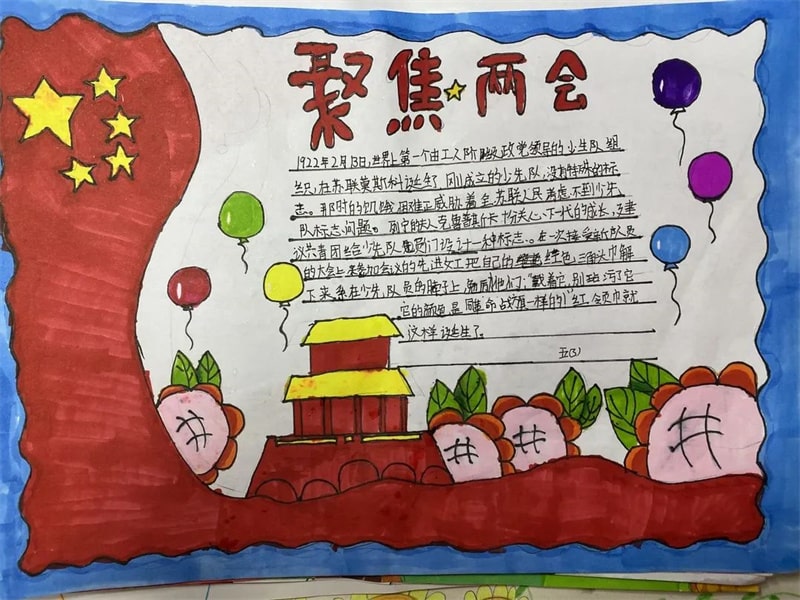 聚焦两会
1922年2月13日,世界上第一个由工人阶级政党领导的少年队组
织,在苏联莫斯科诞生了,刚成立的少先队,没有特殊的标
志。那时的饥饿困难正威胁着全苏联人民考虑不到少先
队标志问题。列宁的夫人克鲁普斯卡 份关心下一代的成长,建
议共青团给少先队员们设计一种标志。在一次接受新队员
的大会上参加会议的先进女工把自己的 绿色三角头巾解
下来,系在少先队员的脖子上,勉励他们:“戴着它,别玷污了它
它的颜色是同革命战旗一样的”红领巾就
这样诞生了。
五(3)